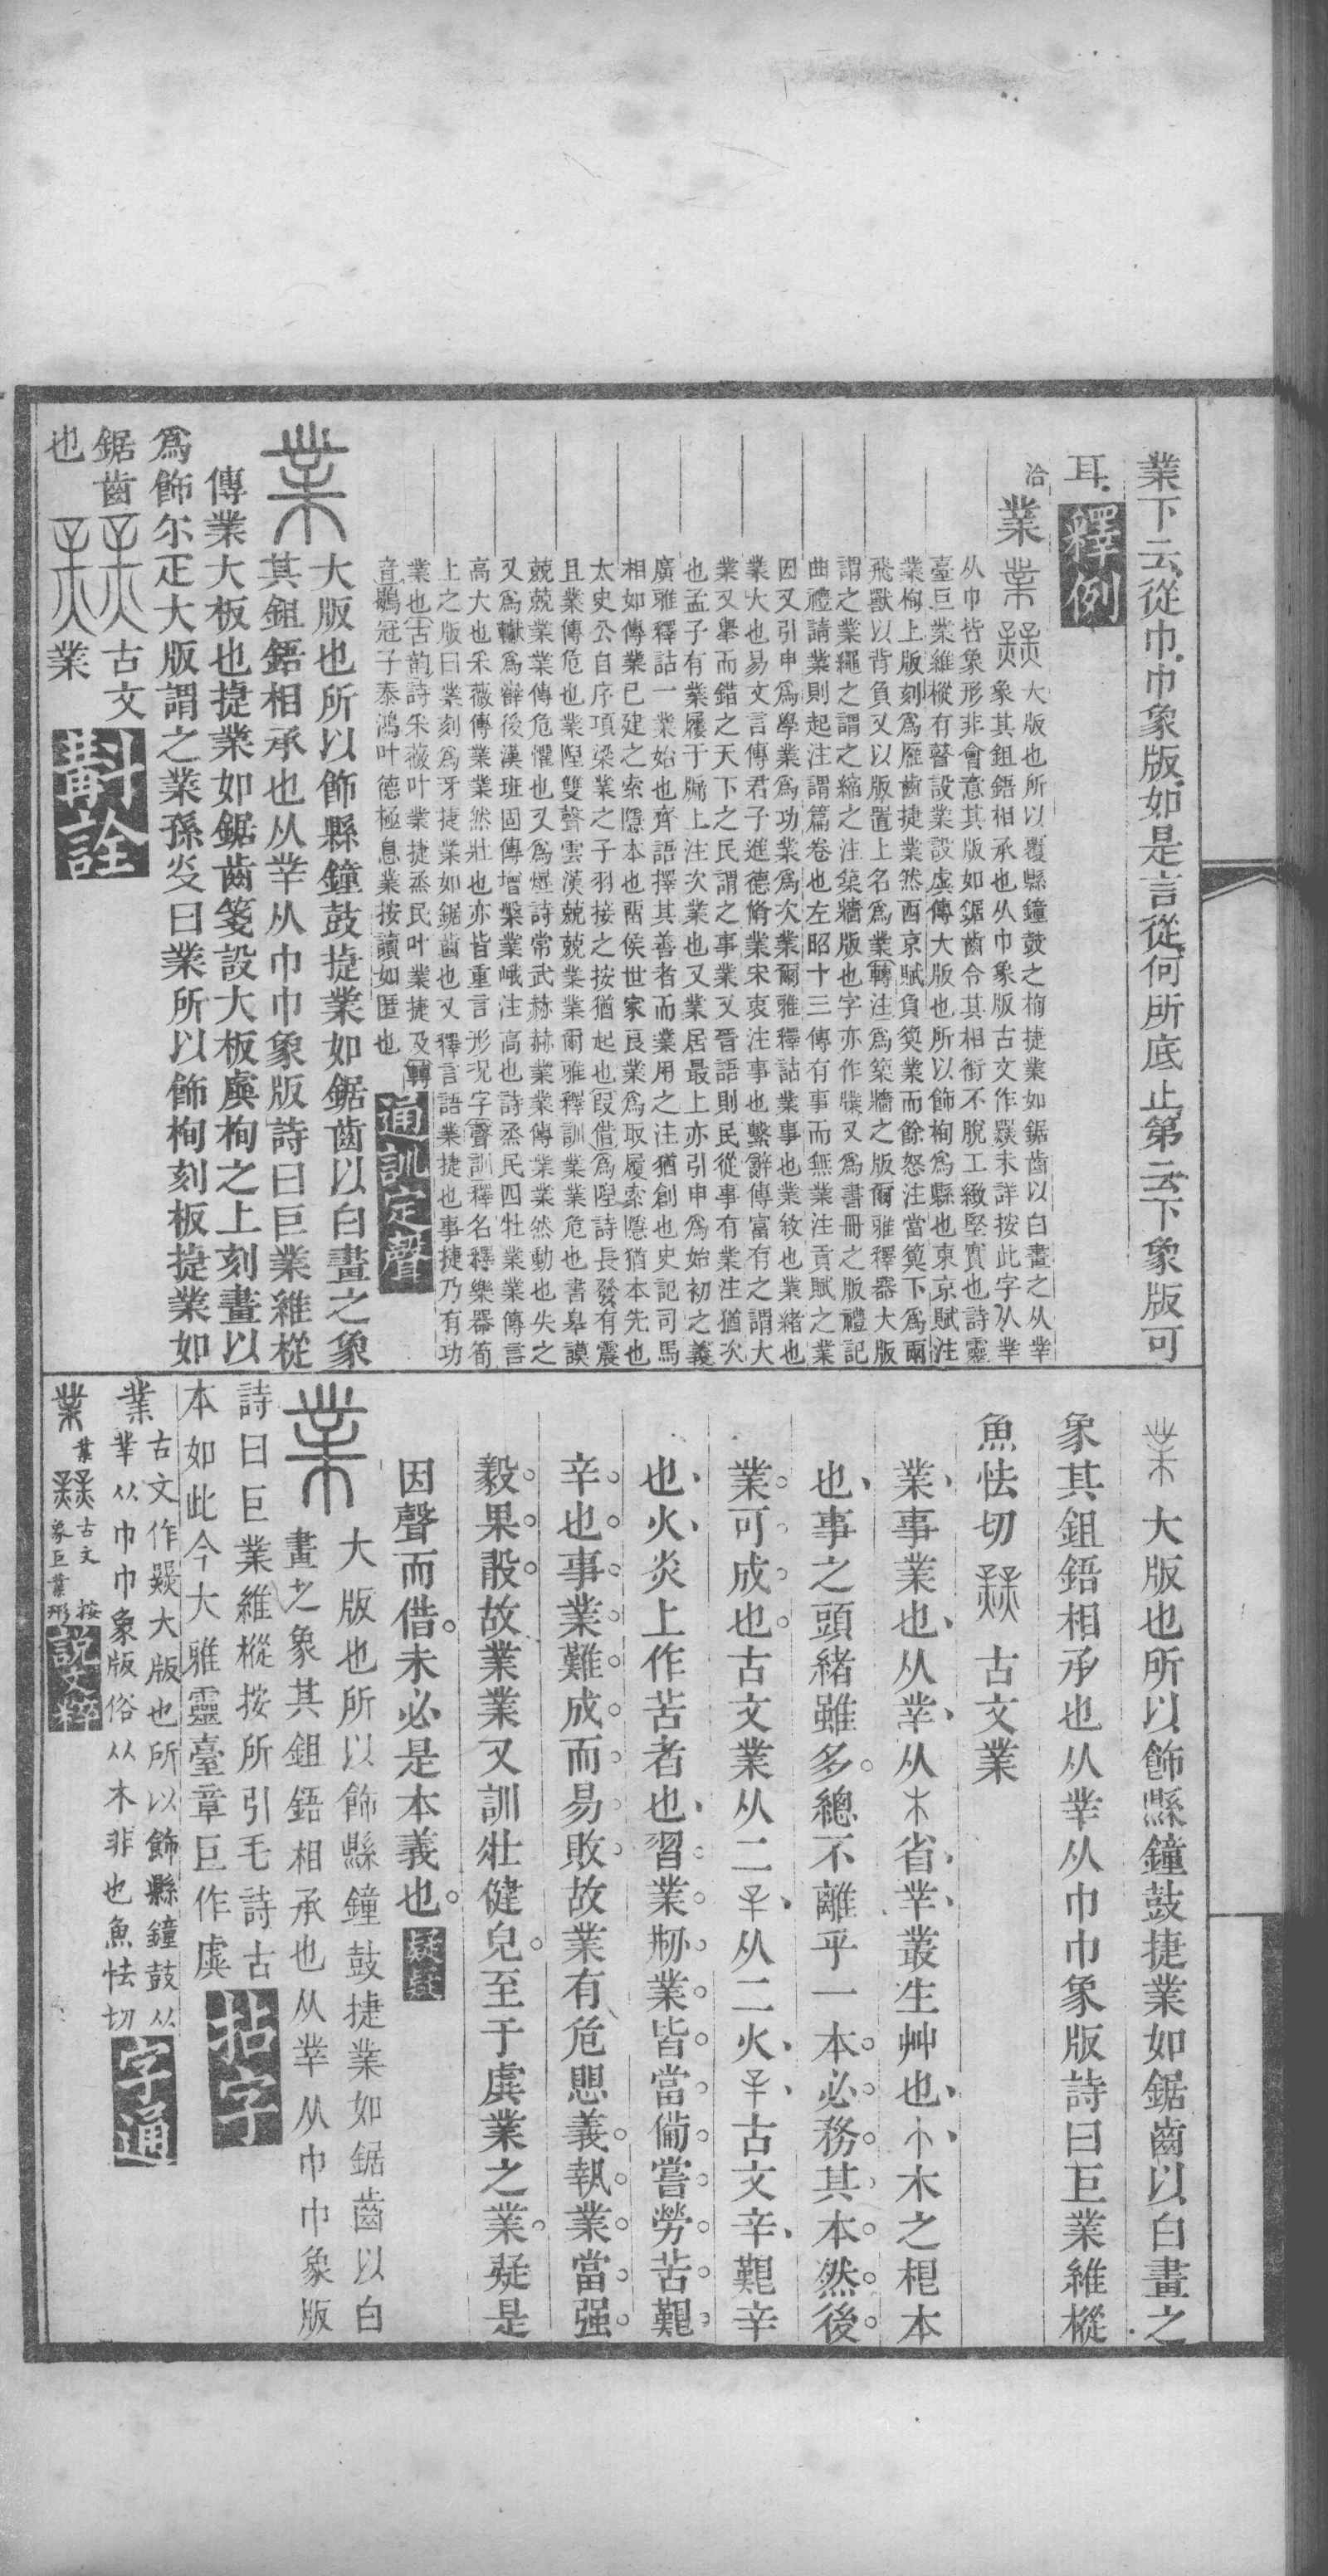 業下云從巾巾象版如是言從何所底止第云下象版可
耳釋例
洽
業
大版也所以覆縣鐘鼓之栒捷業如鋸齒以白畫之从丵
象其鉏鋙相承也从巾象版古文作未詳按此字从丵
从巾皆象形非會意其版如鋸齒令其相銜不脫工緻堅實也詩靈
臺巨業維樅有瞽設業設虡傳大版也所以飾栒為縣也東京賦注
業栒上版刻為雁齒捷業然西京賦負筍業而餘怒注當筍下為兩
飛獸以背負又以版置上名為業轉注為築牆之版爾雅釋器大版
謂之業繩之謂之縮之注築牆版也字亦作牒又為書冊之版禮記
曲禮請業則起注謂篇卷也左昭十三傳有事而無業注貢賦之業
因又引申為學業為功業為次業爾雅釋詁業事也業敘也業緒也
業大也易文言傳君子進德脩業宋衷注事也繫辭傳富有之謂大
業又舉而錯之天下之民謂之事業又晉語則民從事有業注猶次
也孟子有業屨于牖上注次業也又業居最上亦引申為始初之義
廣雅釋詁一業始也齊語擇其善者而業用之注猶創也史記司馬
相如傳業已建之索隱本也留侯世家良業為取履索隱猶本先也
太史公自序項梁業之子羽接之按猶起也叚借為隉詩長發有震
且業傳危也業隉雙聲雲漢兢兢業業爾雅釋訓業業危也書皋謨
兢兢業業傳危懼也又為爗詩常武赫赫業業傳業業然動也失之
又為轙為巘後漢班固傳增槃業峨注高也詩烝民四牡業業傳言
高大也采薇傳業業然壯也亦皆重言形況字聲訓釋名釋樂器筍
上之版曰業刻為牙捷業如鋸齒也又釋言語業捷也事捷乃有功
業也古韵詩采薇叶業捷烝民叶業捷及轉
音鶡冠子泰鴻叶德極息業按讀如匿也
通訓定聲
業
大版也所以飾縣鐘鼓捷業如鋸齒以白畫之象
其鉏鋙相承也从丵从巾巾象版詩曰巨業維樅
傳業大板也捷業如鋸齒箋設大板虡栒之上刻畫以
為飾尔疋大版謂之業孫炎曰業所以飾栒刻板捷業如
鋸齒
也
古文
業
斠詮
業大版也所以飾縣鐘鼓捷業如鋸齒以白畫之
象其鉏鋙相承也从丵从巾巾象版詩曰巨業維樅
魚怯切
古文業
業事業也从丵从木省丵叢生艸也木之根本
也事之頭緒雖多總不離乎一本必務其本然後
業可成也古文業从二辛从二火辛古文辛艱辛
也火炎上作苦者也習業刱業皆當備嘗勞苦艱
辛也事業難成而易敗故業有危思義執業當强
毅果敢故業業又訓壯健皃至于虡業之業疑是
因聲而借未必是本義也疑疑
業
大版也所以飾縣鐘鼓捷業如鋸齒以白
畫之象其鉏鋙相承也从丵从巾巾象版
詩曰巨業維樅按所引毛詩古
本如此今大雅靈臺章巨作虡
拈字
業
古文作大版也所以飾縣鐘鼓从
丵从巾巾象版俗从木非也魚怯切
字通
業
業
古文
按
象巨業形
說文粹